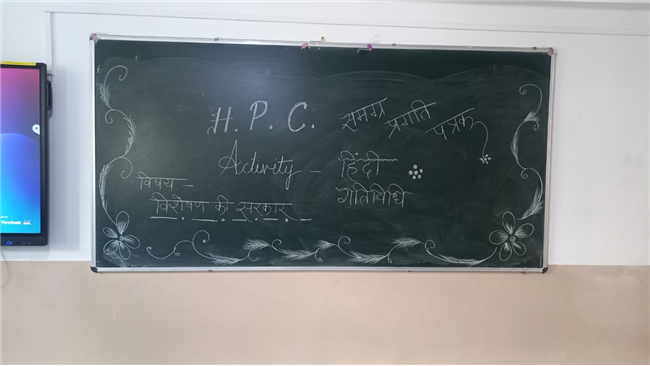 H. P. C. समग्र प्रगति पत्रक
Activity - हिंदी गतिविधि
विषय -
विशेषण की सरकार
ViewSonic